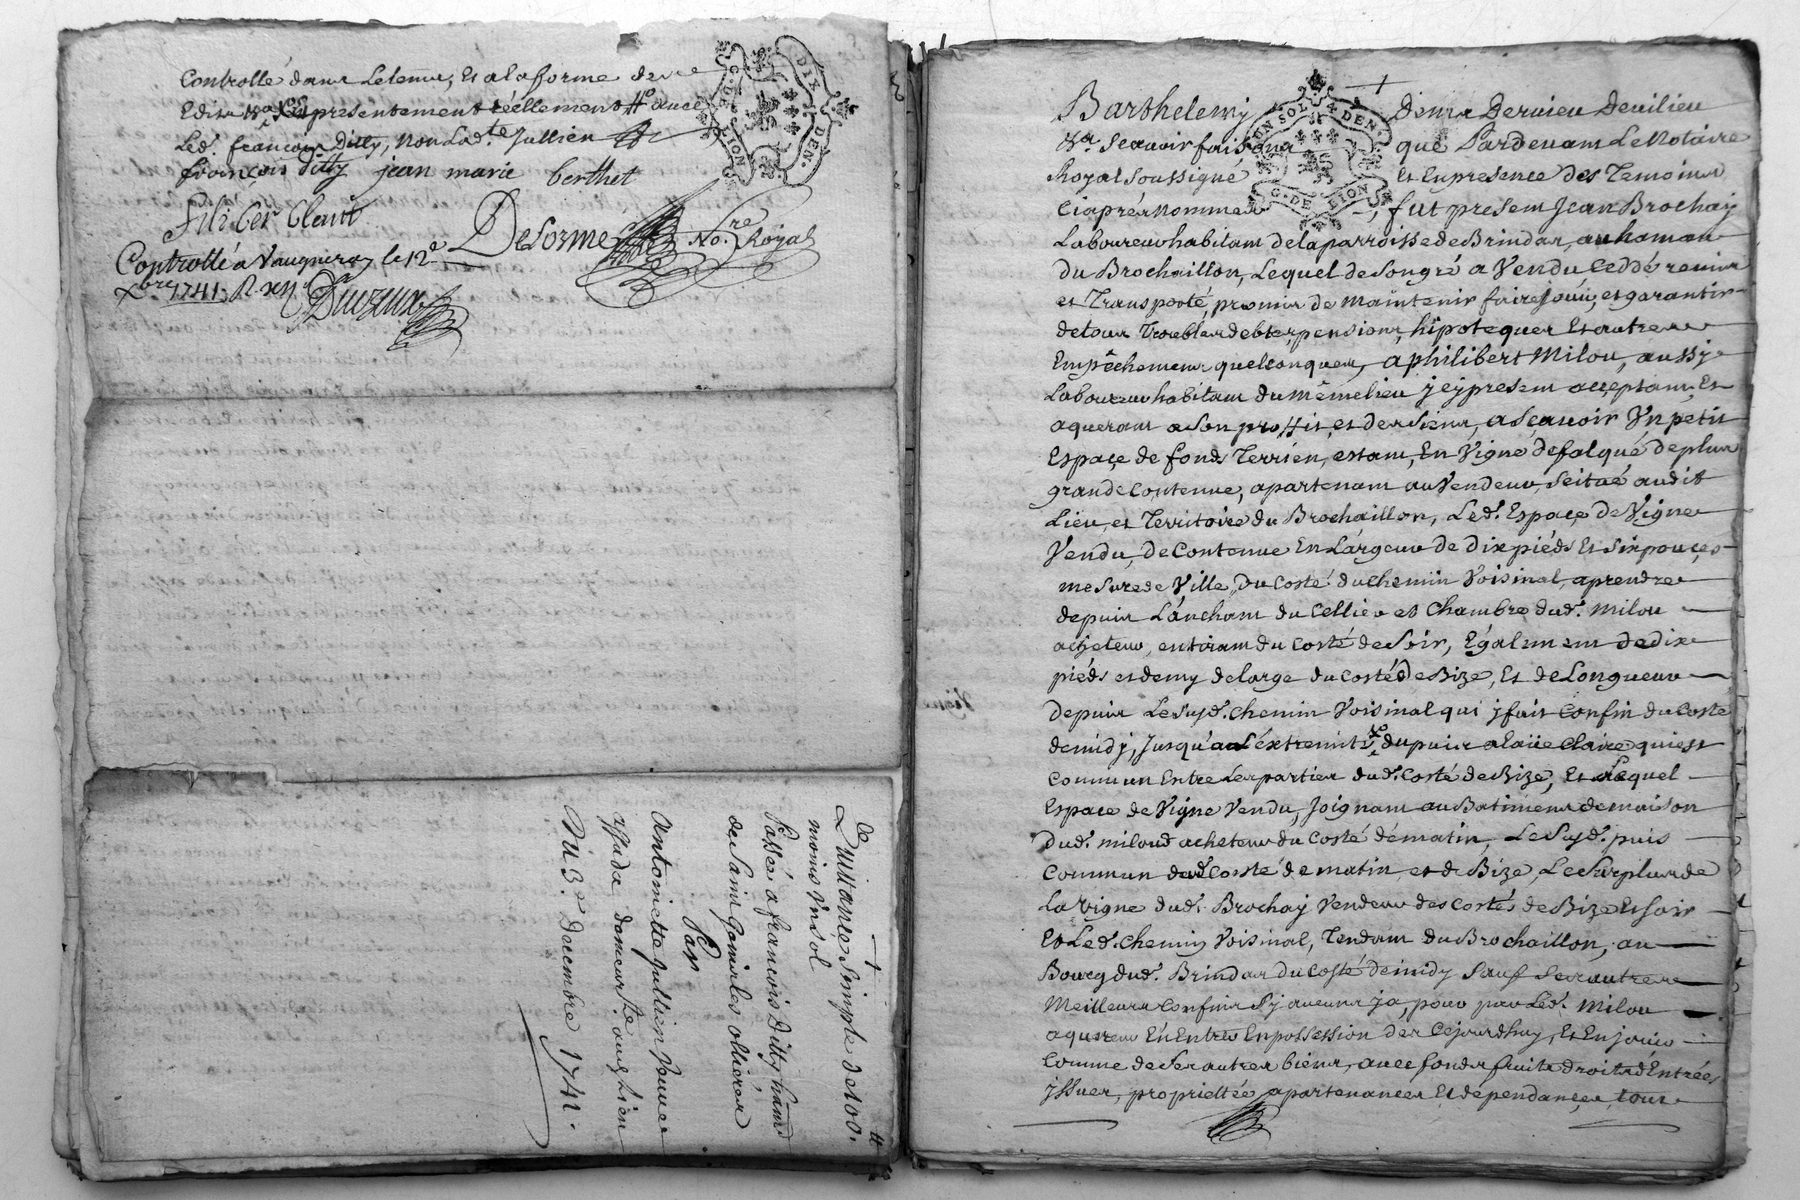 Controllé dans Letems, Et alaforme des
Edits Et presentement réellement avec
Led. françois Ditty, non Lad.te Jullien
françois ditty jean marie berthet
Deforme No.re Royal
Controllé a Vaugneray le 12.e
xbre 1741 R xii s
Quittance Simple de 100.tt
moins un sol
Passé a francois Ditty
de Saint Genis les ollieres
Par
Antoinette Jullien Veuve
demeurte. aud. Lieu
Du 3.e Decembre 1741.
Barthelemy Denis Dervieu Devilieu
Sr. Scavoir faisons que Pardevant Le Notaire
Royal Soussigné Et En presence des Temoins
Ciaprés Nommés, fut present Jean Brochay
Laboureur habitant de la parroisse de Brindas, au hameau
du Brochaillon, Lequel de Son gré a Vendu Ceddé remis
et Transporté, promis de maintenir faire Jouir, et garantir
de tous Troubles debtes, pensions, hipoteques Et autres
Empêchemens quelconques, a philibert Milou, aussy
Laboureur habitant du mêmelieu y cy present acceptant Et
aquerant a Son proffit, et des Siens, a Scavoir Un petit
Espace de fonds Terrien, estant, En Vigne defalqué de plus
grande Contenue, apartenant au Vendeur, Scitué audit
Lieu, et Territoire du Brochaillon, Led. Espace de Vigne
Vendu, de Contenue En Largeur de dix pieds Et Six pouces
mesure de Ville, Du Costé du Chemin Voisinal, aprendre
depuis L'anchant du Cellier et Chambre dud. milou
acheteur, en tirant du Costé de Soir, Egalement de dix
pieds et demy de large du Costé De Bize, Et de Longueur
Depuis Le Susd. Chemin Voisinal qui y fait Confin du Coste
de midy, Jusqu'a L'extremité du puis a L'aüe Claire qui est
Commun Entre Les parties dud. Costé de Bize, Et Lequel
Espace de Vigne Vendu, Joignant au Batimens de maison
Dud. milou achetteur du Costé de matin, Le Susd. puis
Commun dud. Costé de matin et de Bize, Le Surplus de
La Vigne dud. Brochay Vendeur des Costés de Bize Et Soir
Et Led. Chemin Voisinal, Tendant du Brochaillon, au
Bourg dud. Brindas du Costé de midy Sauf Ses autres
Meilleurs Confins Sy aucuns y a, pour par Led. Milou
aquereur En Entrer En possession des Cejourdhuy, Et En jouir
Comme de Ses autres biens, avec fonds fruits droits d'Entrées
jssues, proprieltée apartenances Et dépendances, tous